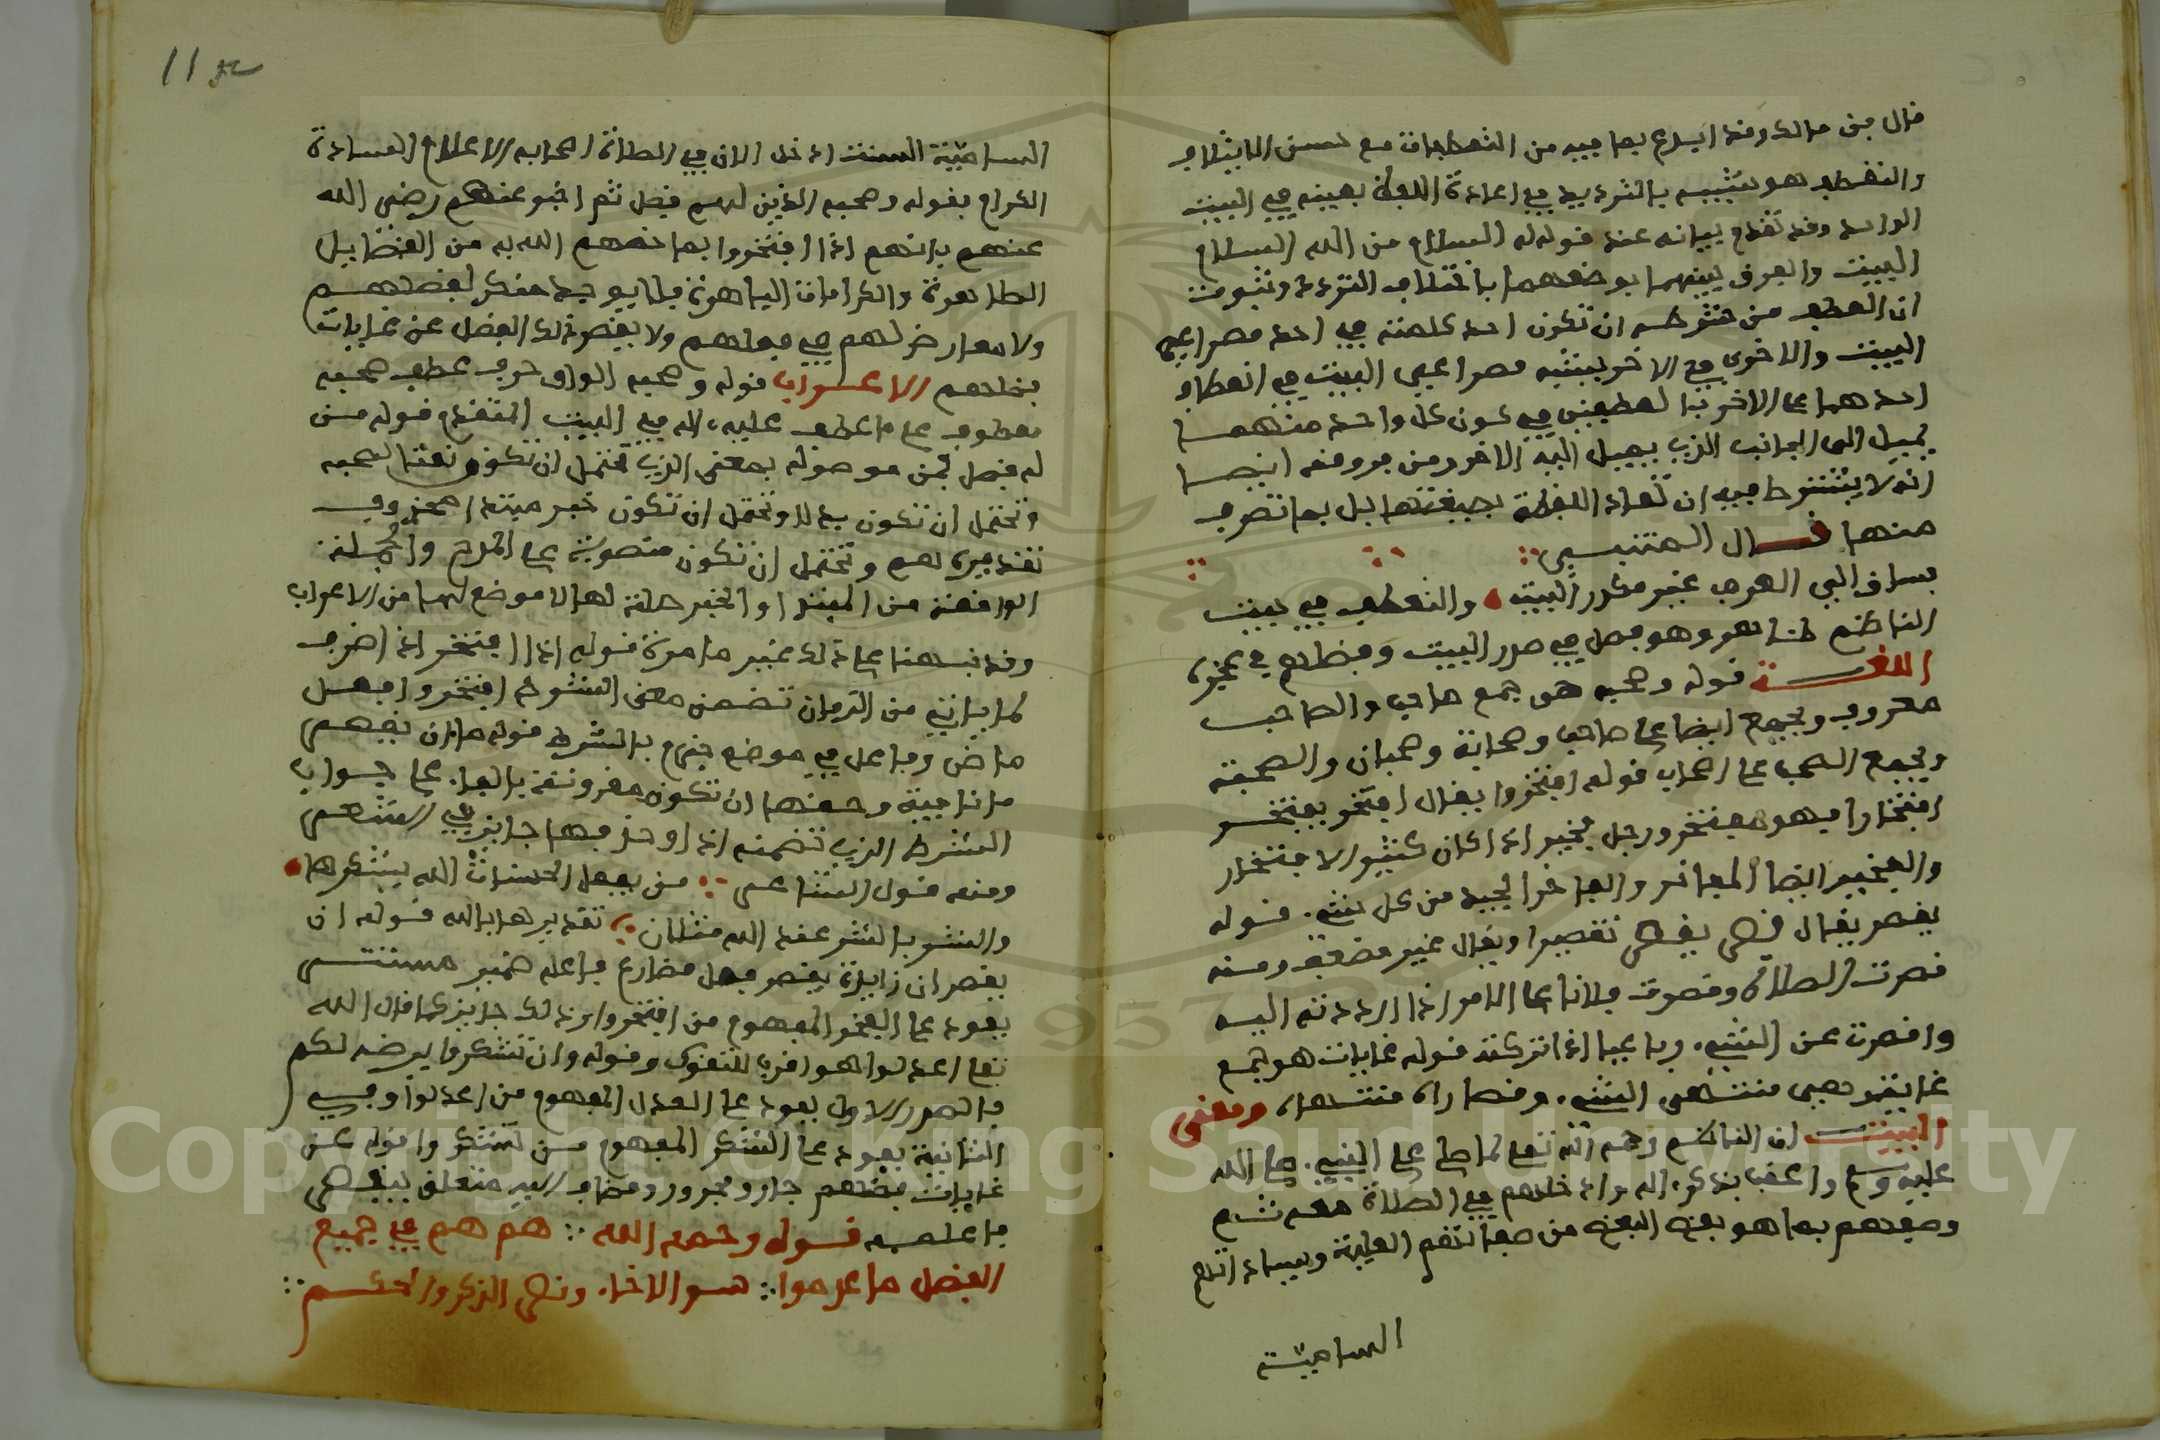 قال بن مالك وقد ابدع بما فيه من التعطفات مع حسن الايتلاف
والتعطف هو شبيه بالترديد في اعادة اللفظة بعينها في البيت
الواحد وقد تقدم بيانه عند قوله له السلام من الله السلام
البيت والفرق بينهما بوضعهما باختلاف التردد وثبوت
ان العطف من شرطه ان تكون احد كلمته في احد مصراعي
البيت والاخرى في الاخر ليشبه مصراعي البيت في انعطاف
احدهما على الاخر بالعطفين في كون كل واحد منهما
يميل الى الجانب الذي يميل اليه الاخر ومن فروقه ايضا
انه لا يشترط فيه ان تعاد اللفظة بصيغتها بل بما تصرف
منها قال المتنبي
فساق الي العرف غير مكدر البيت والتعطف في بيت
الناظم ظاهر وهو فصل في صدر البيت وفضلهم في عجزه
اللغة قوله وصحبه هو جمع صاحب والصاحب
معروف ويجمع ايضا على صاحب وصحابة وصحبان والصحبة
ويجمع الصحب على اصحاب قوله افتخروا يقال افتخر يفتخر
افتخارا فهو مفتخر ورجل فخير اذا كان كثير الافتخار
والفخير ايضا المفاخر والفاخر الجيد من كل شيء قوله
يقصر يقال قصر يقصر تقصيرا ويقال غير مضعف ومنه
قصرت الصلاة وقصرت فلانا على الامر اذا رددته اليه
واقصرت عن الشيء رباعيا اذا تركته قوله غايات هو جمع
غاية وهي منتهى الشيء وقصاراه منتهاه ومعنى
البيت ان الناظم رحمه الله تعالى لما صلى على النبي صلى الله
عليه وسلم واعقب بذكر اله واد خلهم في الصلاة معه ثم
وصفهم بما هو بعض البعض من صفاتهم العلية وسياداتهم
السامية
11
السامية السنية ادخل الان في الصلاة اصحابه الاعلام السادة
الكرام بقوله وصحبه الذين لهم فضل ثم اخبر عنهم رضي الله
عنهم بانهم اذا افتخروا بما خصهم الله به من الفضايل
الطاهرة والكرامات الباهرة فلا يوجد منكر لفضلهم
ولا معارض لهم في فعلهم ولا يقصر ذلك الفضل عن غايات
فضلهم الاعراب قوله وصحبه الواو حرف عطف صحبه
معطوف على ما عطف عليه اله في البيت المتقدم قوله من
له فضل فمن موصوله بمعنى الذي تحتمل ان تكون نعتا لصحبه
وتحتمل ان تكون بدلا وتحتمل ان تكون خبر مبتدا محذوف
تقديره هم وتحتمل ان تكون منصوبة على المدح والجملة
الواقعة من المبتدا والخبر صلة لها لا موضع لها من الاعراب
وقد نبهنا على ذلك غير ما مرة قوله اذا افتخروا اذا ظرف
لما ياتي من الزمان تضمن معنى الشرط افتخروا فعل
ماض وفاعل في موضع جزم بالشرط قوله ما ان يقصر
ما نافية وحقها ان تكون مقرونة بالفاء على جواب
الشرط الذي تضمنه اذا وحذفها جايز في الشعر
ومنه قول الشاعر من يفعل الحسنات الله يشكرها
والشر بالشر عند الله مثلان تقديرها بالله قوله ان
يقصر ان زايدة يقصر فعل مضارع فاعله ضمير مستتر
يعود على الفخر المفهوم من افتخروا وذلك جايز كما قال الله
تعالى اعدلوا هو اقرب للتقوى وقوله وان تشكروا يرضه لكم
فالضمير الاول يعود على العدل المفهوم من اعدلوا وفي
الثانية يعود على الشكر المفهوم من تشكروا قوله عن
غايات فضلهم جار ومجرور ومضاف اليه متعلق بيقصر
فاعلمه قوله رحمه الله هم هم في جميع
الفضل ما عدموا سوى الاخاء ونص الذكر والحكم
Copyright © King Saud University
1957